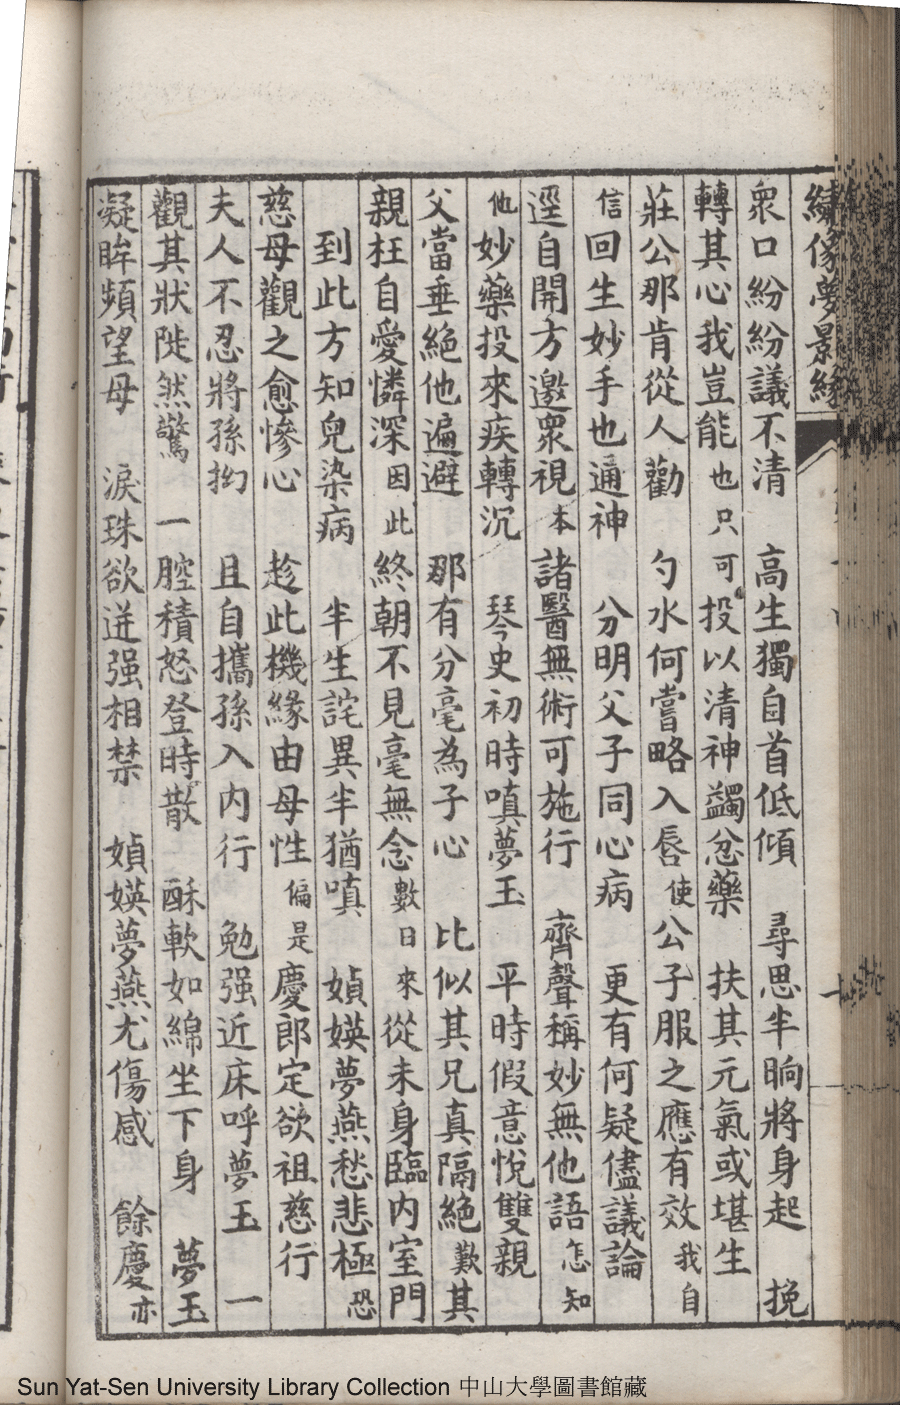 繡像夢景緣
衆口紛紛議不清　高生獨自首低傾　尋思半晌將身起　挽
轉其心我豈能也只可投以清神蠲忿藥　扶其元氣或堪生
莊公那肯從人勸　勺水何嘗略入唇使公子服之應有效我自
信回生妙手也通神　分明父子同心病　更有何疑儘議論
逕自開方邀衆視本諸醫無術可施行　齊聲稱妙無他語怎知
他妙藥投來疾轉沉　琴史初時嗔夢玉　平時假意悅雙親
父當垂絕他遍避　那有分毫為子心　比似其兄真隔絕歎其
親枉自愛憐深因此終朝不見毫無念數日來從未身臨內室門
到此方知兒染病　半生詫異半猶嗔　媜媖夢燕愁悲極恐
慈母觀之愈慘心　趁此機緣由母性偏是慶郎定欲祖慈行
夫人不忍將孫拗　且自攜孫入內行　勉强近床呼夢玉　一
觀其狀陡然驚　一腔積怒登時散　酥軟如綿坐下身　夢玉
凝眸頻望母　淚珠欲迸强相禁　媜媖夢燕尤傷感　餘慶亦
Sun Yat-Sen University Library Collection 中山大學圖書館藏